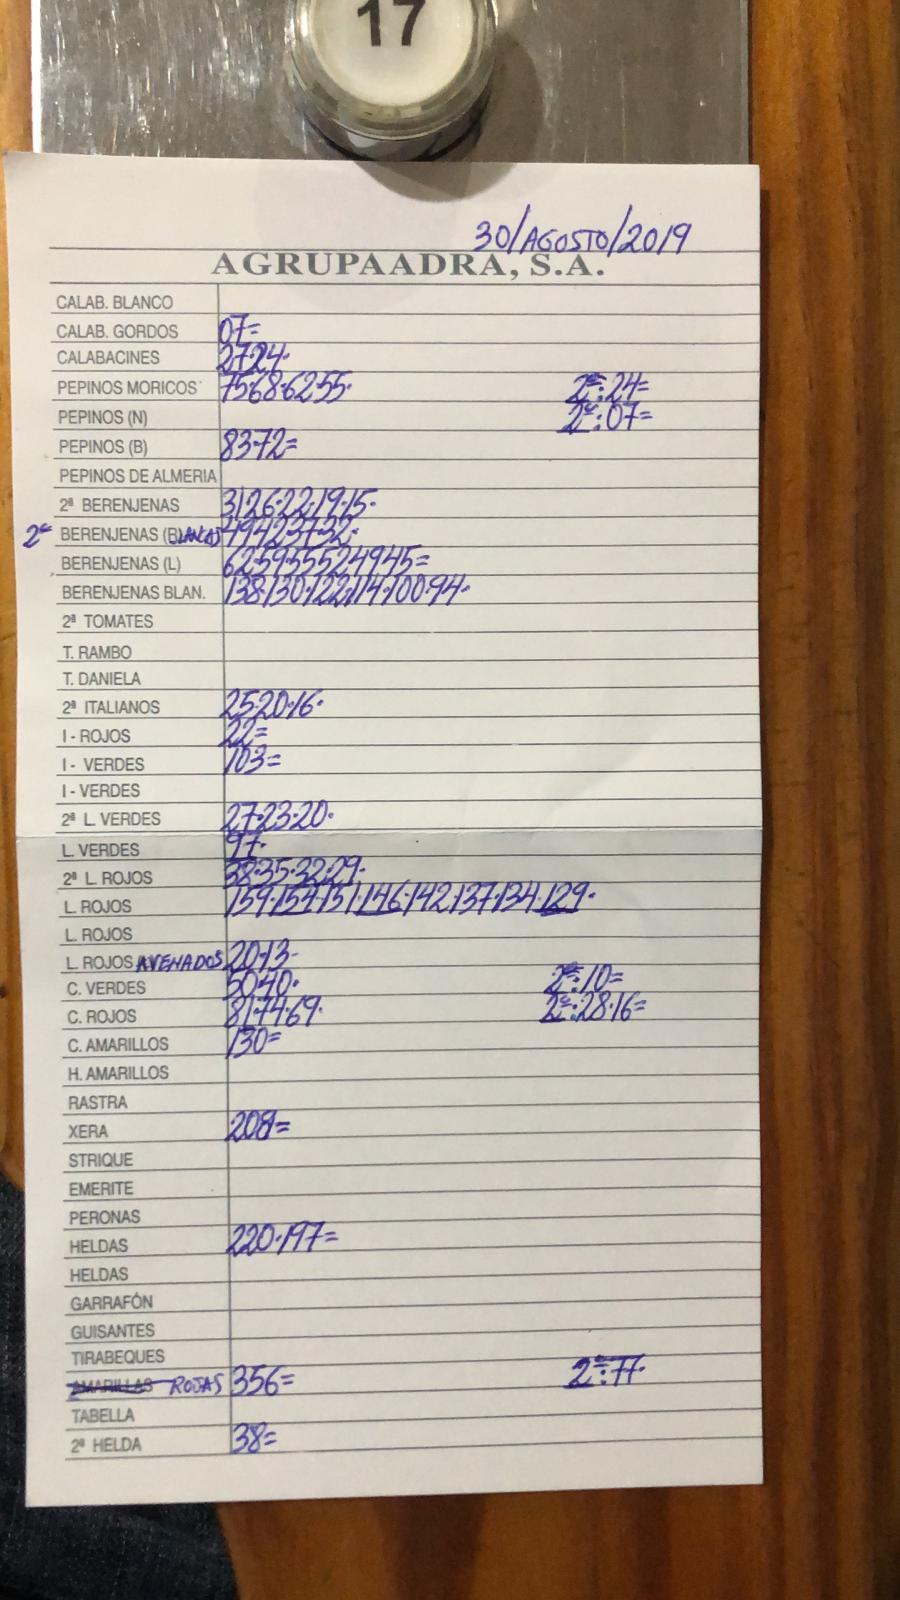 17
30/AGOSTO/2019
AGRUPAADRA, S.A.
CALAB. BLANCO
CALAB. GORDOS 07=
CALABACINES 27·24·
PEPINOS MORICOS 75·68·62·55· 2ª:24=
PEPINOS (N) 2ª:07=
PEPINOS (B) 83·72=
PEPINOS DE ALMERIA
2ª BERENJENAS 31·26·22·19·15·
2ª BERENJENAS (BLANCAS) 49·42·37·32·
BERENJENAS (L) 62·59·55·52·49·45=
BERENJENAS BLAN. 138·130·122·114·100·94·
2ª TOMATES
T. RAMBO
T. DANIELA
2ª ITALIANOS 25·20·16·
I - ROJOS 22=
I - VERDES 103=
I - VERDES
2ª L. VERDES 27·23·20·
L. VERDES 97·
2ª L. ROJOS 38·35·32·29·
L. ROJOS 159·154·151·146·142·137·134·129·
L. ROJOS
L. ROJOS AVENADOS 20·13·
C. VERDES 50·40· 2ª:10=
C. ROJOS 81·74·69· 2ª:28·16=
C. AMARILLOS 130=
H. AMARILLOS
RASTRA
XERA 208=
STRIQUE
EMERITE
PERONAS
HELDAS 220·197=
HELDAS
GARRAFÓN
GUISANTES
TIRABEQUES
AMARILLAS ROJAS 356= 2ª:77·
TABELLA
2ª HELDA 38=